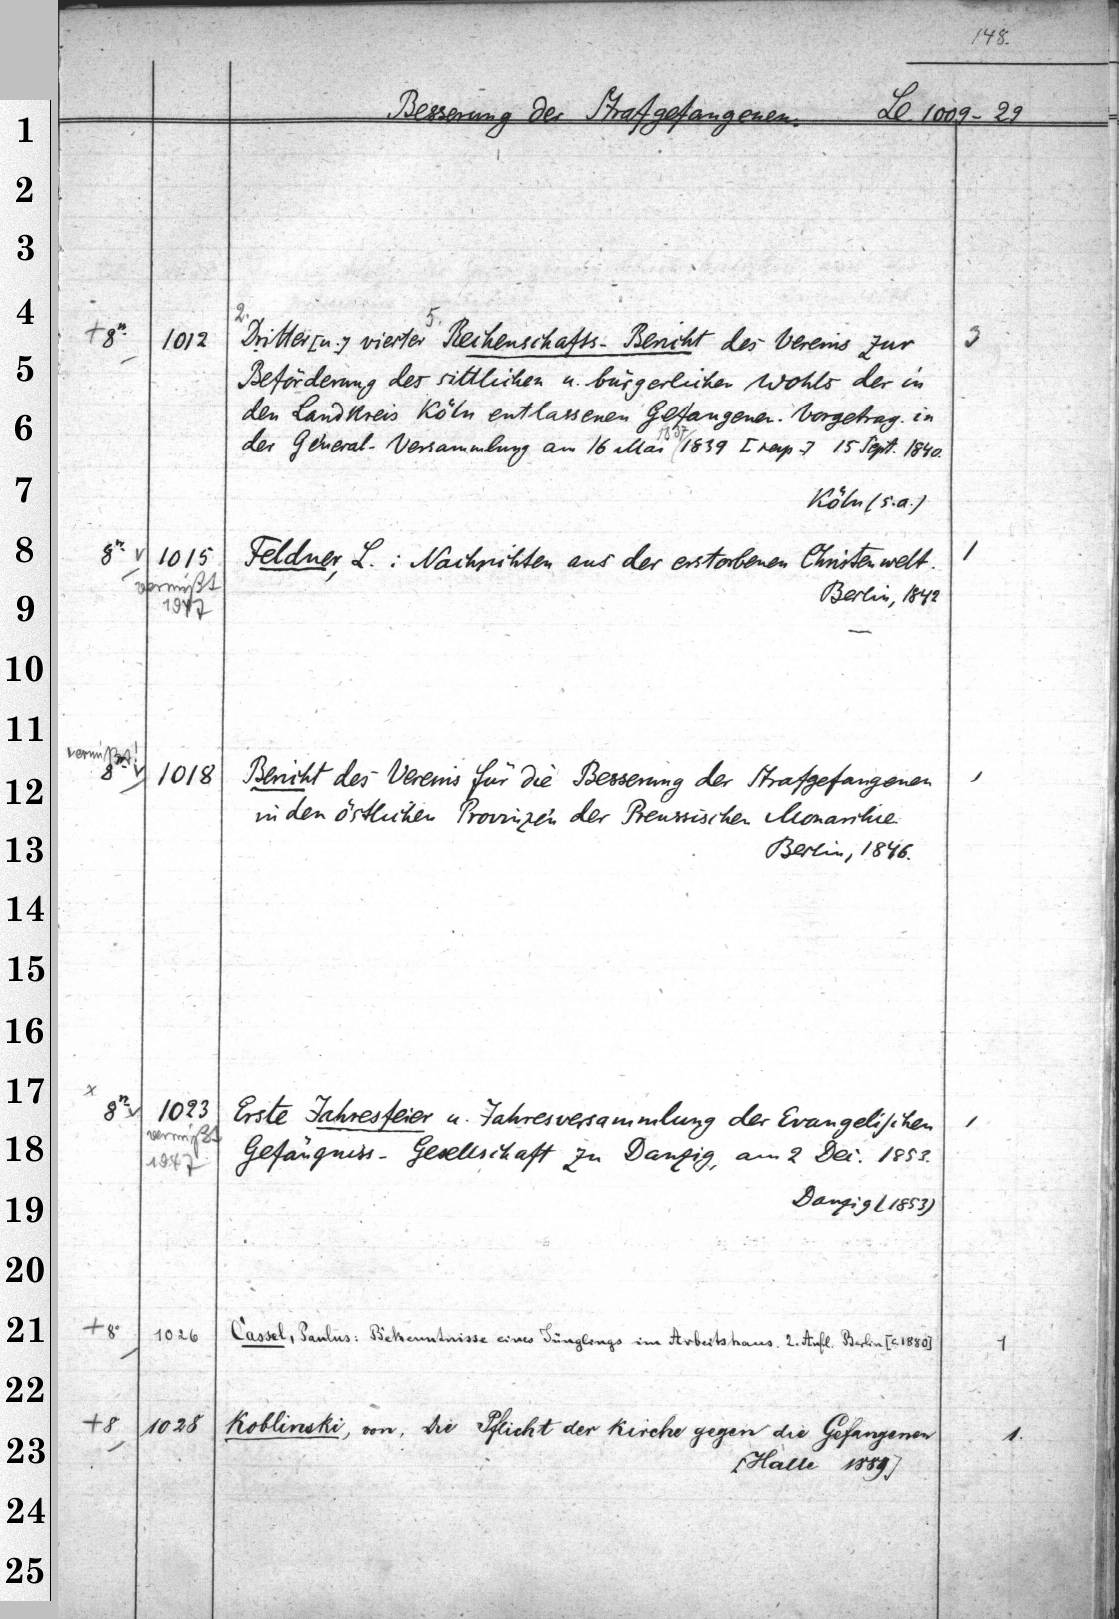 148.
Besserung der Strafgefangenen. Le 1009-29
2. 5.
+ 8º 1012 Dritter [u.] vierter Rechenschafts-Bericht des Vereins zur 3
Beförderung des sittlichen u. bürgerlichen Wohls der in
den Landkreis Köln entlassenen Gefangenen. Vorgetrag. in
der General-Versammlung am 16 Mai 1837/1839 [resp.] 15 Sept. 1840.
Köln (s.a.)
8º v 1015 Feldner, L.: Nachrichten aus der erstorbenen Christenwelt. 1
vermißt Berlin, 1842
1947
vermißt!
8º v 1018 Bericht des Vereins für die Besserung der Strafgefangenen 1
in den östlichen Provinzen der Preussischen Monarchie.
Berlin, 1846.
x
8º v 1023 Erste Jahresfeier u. Jahresversammlung der Evangelischen 1
vermißt Gefängniss-Gesellschaft zu Danzig, am 2 Dec. 1853.
1947
Danzig (1853)
+ 8º 1026 Cassel, Paulus: Bekenntnisse eines Jünglings im Arbeitshaus. 2. Aufl. Berlin [c. 1880] 1
+ 8 1028 Koblinski, von, Die Pflicht der Kirche gegen die Gefangenen 1.
[Halle 1889]
1
2
3
4
5
6
7
8
9
10
11
12
13
14
15
16
17
18
19
20
21
22
23
24
25